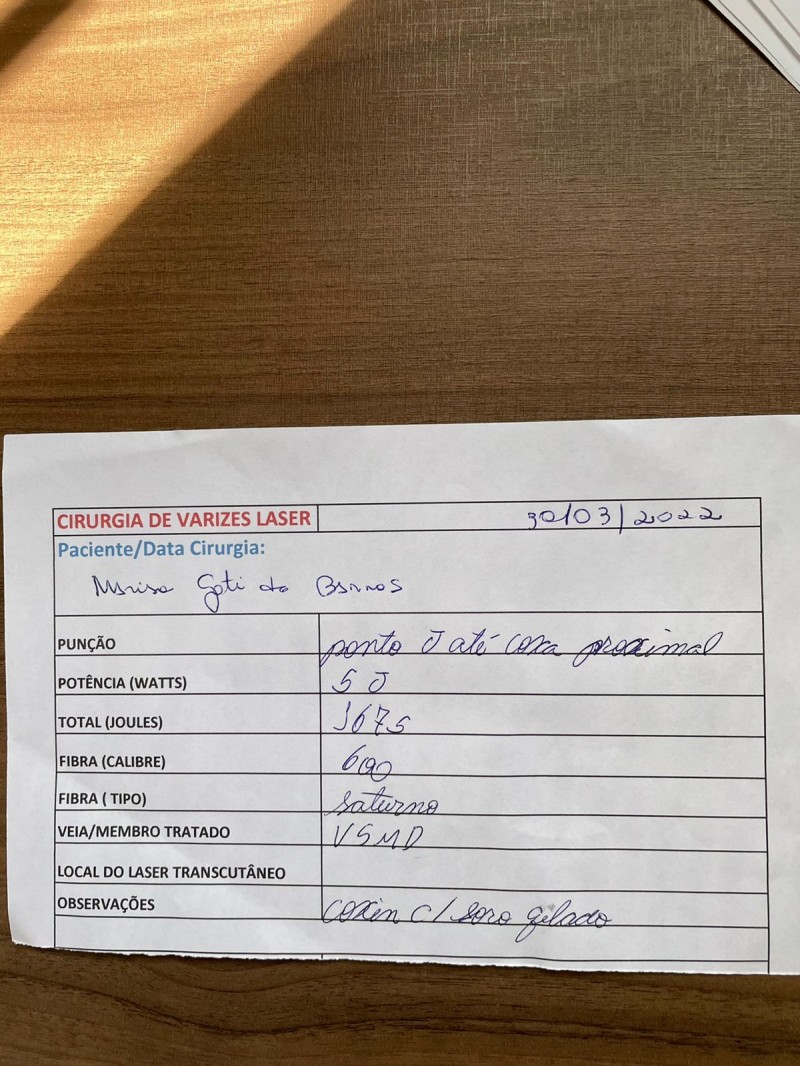 CIRURGIA DE VARIZES LASER 30/03/2022
Paciente/Data Cirurgia:
Marisa Goti de Barros
PUNÇÃO ponto J até coxa proximal
POTÊNCIA (WATTS) 5 J
TOTAL (JOULES) 1675
FIBRA (CALIBRE) 600
FIBRA ( TIPO) saturno
VEIA/MEMBRO TRATADO VSMD
LOCAL DO LASER TRANSCUTÂNEO
OBSERVAÇÕES coxin c/ soro gelado